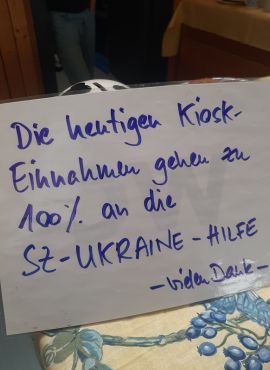 Die heutigen Kiosk-
Einnahmen gehen zu
100% an die
SZ-UKRAINE-HILFE
- vielen Dank -